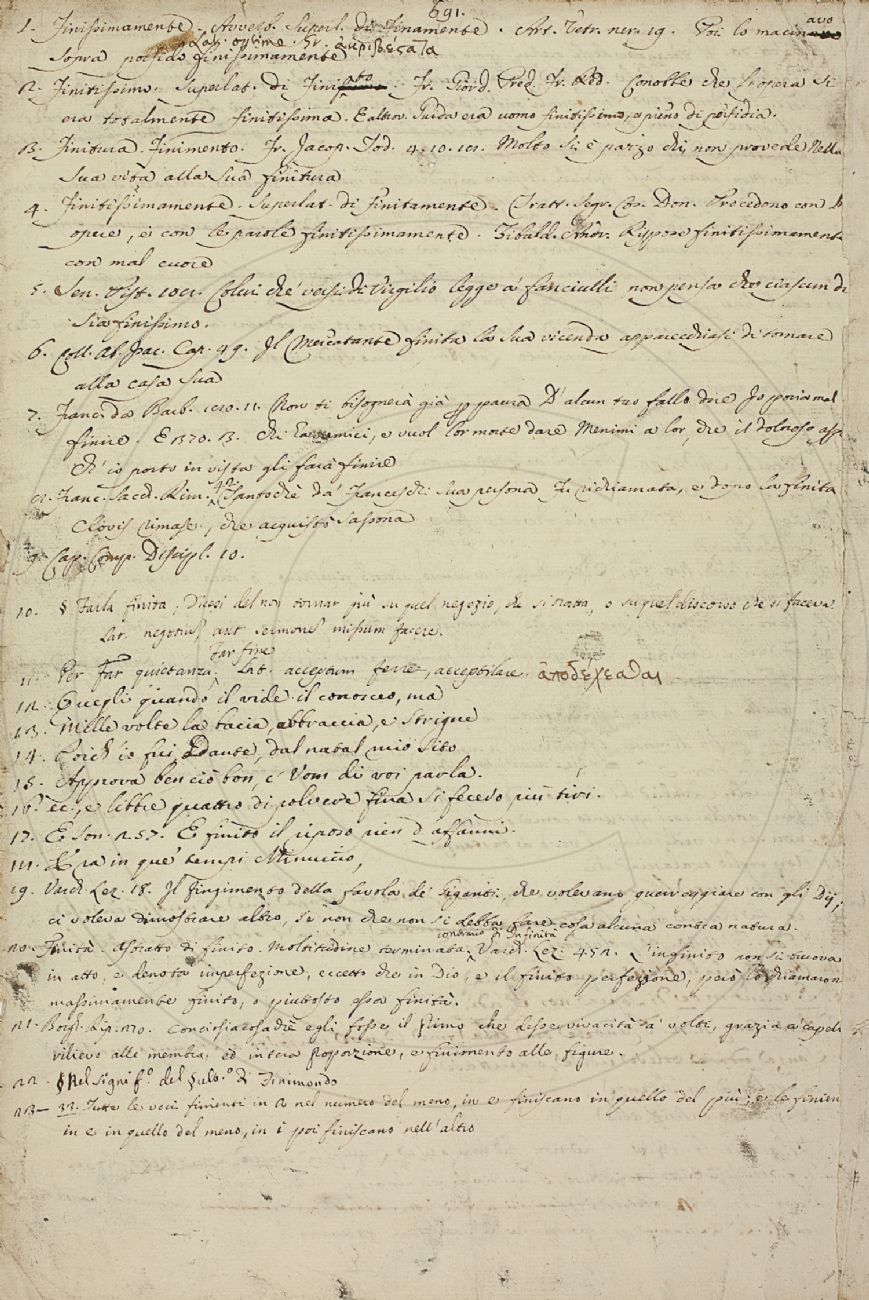 691.
1. Finissimamente. Avverb. Superl. di Finamente. Art. Vetr. ner. 19. Poi lo macinavo
Lat. optime. Gr. ἀκριβέστατα
sopra porfido finissimamente
2. Finitissimo. Superlat. di Finito. Fr. Giord. Pred. Fr. Red. Conobbe che l'opera si
era totalmente finitissima. E altrov. Guida era uomo finitissimo, e pieno di perfidia.
3. Finitura. Finimento. Fr. Jacop. Tod. 4. 10. 12. Molto si è pazzo chi non provvede Nella
sua vita alla sua finitura
4. Finitissimamente. Superlat. di Finitamente. Tratt. Segr. Cos. Don. Procedono con l'
opere, e con le parole finitissimamente. Tibald. Andr. Rispose finitissimamente
con mal cuore
5. Sen. Pist. 102. Colui che versi di Virgilio legge a' fanciulli non pensa che ciascun di
sia finissimo.
6. Coll. Ab. Isac. Cap. 49. Il Mercatante finita la sua vicenda apparecchiasi di tornare
alla casa sua
7. Franc. da Barb. 120. 11. Non ti bisognerà già p paura D'alcun tuo fallo dire Io poria mal
finire. E 370. 13. Chi ha nemici, e vuol lor morte dare Menimi a lor, che il doloroso asp.
Ch' io porto in vista gli farà finire
8. Franc. Sacch. Rim. 41. Santochè da' Franceschi sua persona Fu richiamata, e dopo la finita
Clovis rimase, che acquistò Sassona
9. Cap. Comp. Discipl. 10.
10. § Farla finita, Dicesi del non tornar più su quel negozio, che si tratta, o su quel discorso che si faceva.
Lat. negotium, aut sermonem missum facere.
Far fine
11. Per Far quietanza. Lat. acceptum ferre, acceptilare. ἀποδέχεσθαι
12. Quegli quando il vide il conosceo, ma
13. Mille volte la bacia, abbraccia, e strigne
14. Poich' io fui, Dante, dal natal mio sito
15. Approva ben ciò bon, c' Uom di voi parla.
16. ec., e libbre quattro di polvere fina si fecero più tiri.
17. E Son. 257. E finito il riposo pien d'affanni.
18. Era in que' tempi Minuccio,
19. Varch. Lez. 18. Il Fingimento della favola de' Giganti, che volevano guerreggiare con gli Dij,
ci voleva dimostrare altro, se non che non si debba fare cosa alcuna contra natura.
contrario di Infinità
20. Finità. Astratto di finito. Moltitudine terminata. Varch. Lez. 452. L'infinito non si truova
in atto, e denota imperfezione, eccetto che in Dio, e il finito perfezione, però lo chiamaron
massimamente finito, o piuttosto essa finità.
21. Borgh. Rip. 270. Conciosiacosachè egli fosse il primo che desse vivacità a' volti, grazia a' capelli
rilievo alle membra, ed intera proporzione, e finimento alle figure.
22. § Nel signif.º del Sub.º di Finimondo
23 — 33. Tutte le voci finienti in a nel numero del meno, in e finiscano in quello del più; e le finien
in e in quello del meno, in i poi finiscano nell'altro